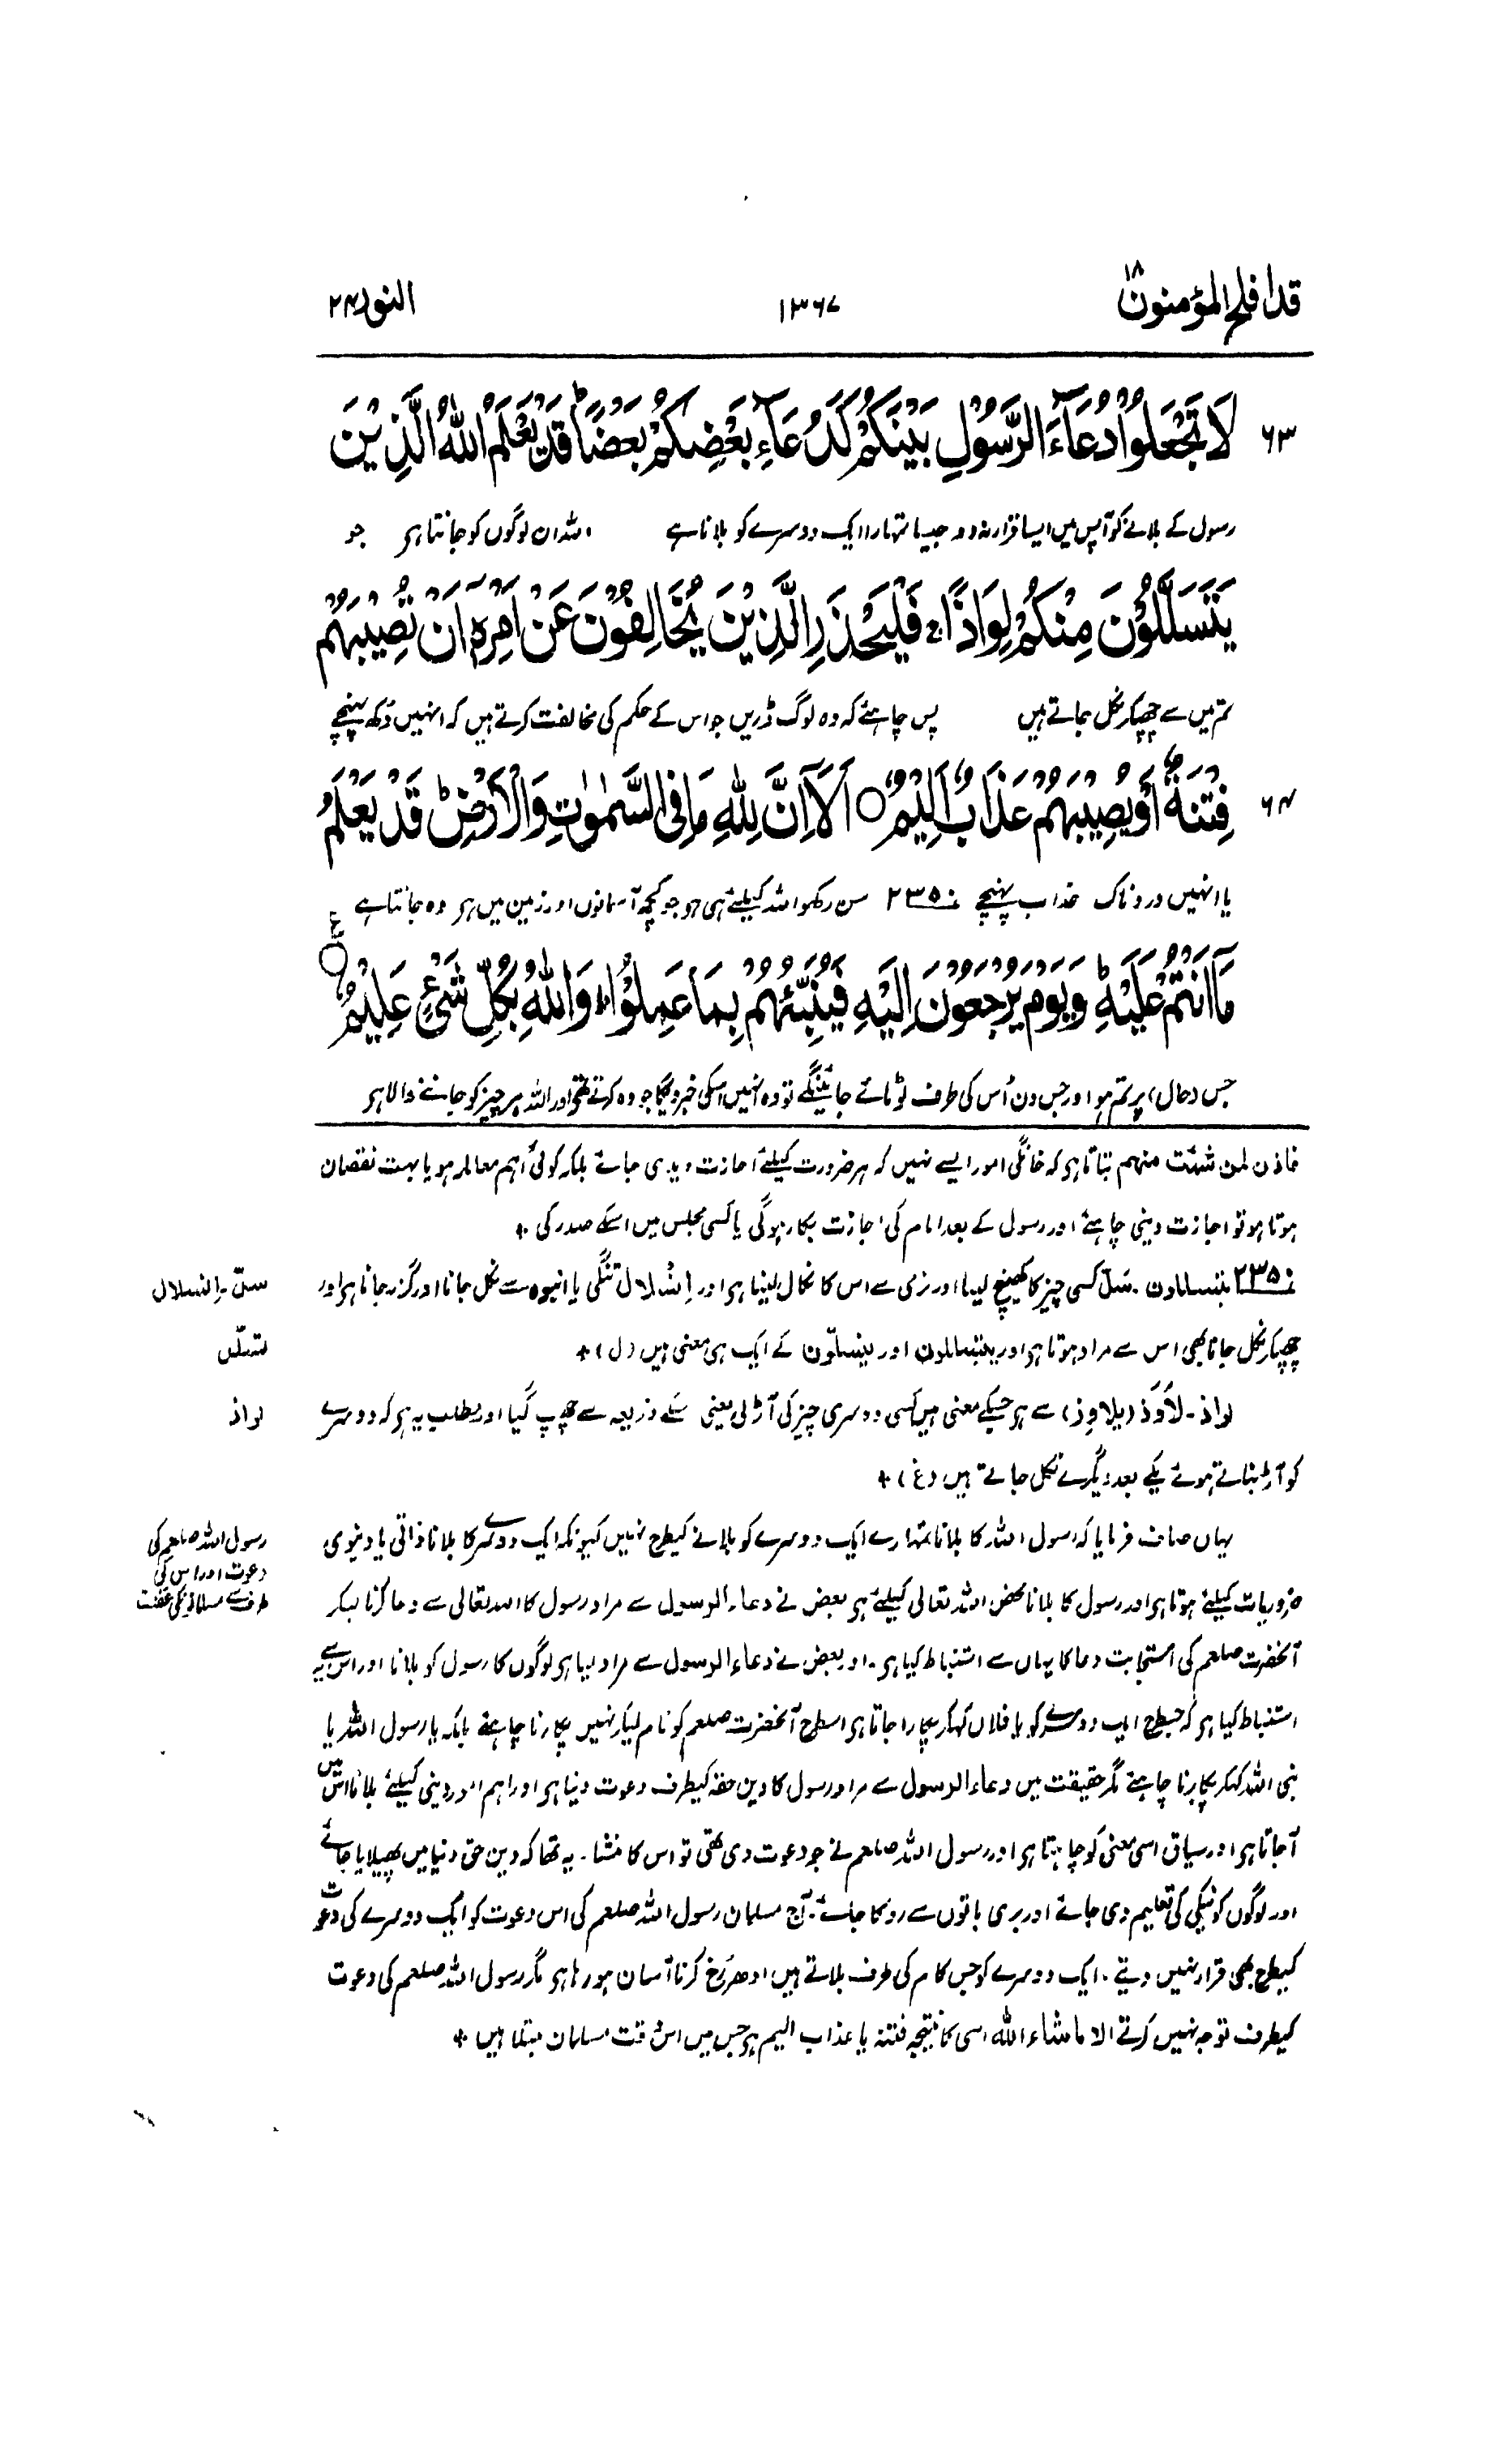 قد افلح المؤمنون ۱۸
۱۳۶۷
النور ۲۴
۶۳ لَا تَجْعَلُوْا دُعَآءَ الرَّسُوْلِ بَيْنَكُمْ كَدُعَآءِ بَعْضِكُمْ بَعْضًا ؕ قَدْ يَعْلَمُ اللّٰهُ الَّذِيْنَ
رسول کے بلانے کو آپس میں ایسا قرار نہ دو جیسا تمہارا ایک دوسرے کو بلانا ہے اللہ ان لوگوں کو جانتا ہی جو
يَتَسَلَّلُوْنَ مِنْكُمْ لِوَاذًا ۚ فَلْيَحْذَرِ الَّذِيْنَ يُخَالِفُوْنَ عَنْ اَمْرِهٖٓ اَنْ تُصِيْبَهُمْ
تم میں سے چھپکر نکل جاتے ہیں پس چاہئے کہ وہ لوگ ڈریں جو اس کے حکم کی مخالفت کرتے ہیں کہ انہیں دُکھ پہنچے
۶۴ فِتْنَةٌ اَوْ يُصِيْبَهُمْ عَذَابٌ اَلِيْمٌ ○ اَلَآ اِنَّ لِلّٰهِ مَا فِى السَّمٰوٰتِ وَالْاَرْضِ ؕ قَدْ يَعْلَمُ
یا انہیں دردناک عذاب پہنچے ن۲۳۵ سن رکھو اللہ کیلئے ہی ہی جو جو کچھ آسمانوں اور زمین میں ہی وہ جانتا ہے
مَآ اَنْتُمْ عَلَيْهِ ؕ وَيَوْمَ يُرْجَعُوْنَ اِلَيْهِ فَيُنَبِّئُهُمْ بِمَا عَمِلُوْا ؕ وَاللّٰهُ بِكُلِّ شَىْءٍ عَلِيْمٌ ○ ع
جس (حال) پر تم ہو اور جس دن اُس کی طرف لوٹائے جائینگے تو وہ انہیں اسکی خبر دیگا جو وہ کرتے تھے اور اللہ ہر چیز کو جاننے والا ہی
فاذن لمن شئت منہم بتاتا ہی کہ خانگی امور ایسے نہیں کہ ہر ضرورت کیلئے اجازت دیدی جائے بلکہ کوئی اہم معاملہ ہو یا بہت نقصان
ہوتا ہو تو اجازت دینی چاہئے اور رسول کے بعد امام کی اجازت بکار ہوگی یا کسی مجلس میں اسکے صدر کی +
ن۲۳۵ یتسللون ۔ سَلّ کسی چیز کا کھینچ لینا اور نرمی سے اس کا نکال لینا ہی اور اِنسلال تنگی یا انبوہ سے نکل جانا اور گزر جانا ہی اور
سلّ ۔ انسلال
چھپکر نکل جانا بھی اس سے مراد ہوتا ہی اور یتسللون اور ینسلّون کے ایک ہی معنی ہیں (ل) +
تسلّل
لواذ ۔ لَاوَذَ (یلاوِذ) سے ہی جسکے معنی ہیں کسی دوسری چیز کی آڑ لی یعنی اسکے ذریعہ سے چھپ گیا اور مطلب یہ ہی کہ دوسرے
لواذ
کو آڑ بناتے ہوئے یکے بعد دیگرے نکل جاتے ہیں (غ) +
یہاں صاف فرمایا کہ رسول اللہ کا بلانا تمہارے ایک دوسرے کو بلانے کیطرح نہیں کیونکہ ایک دوسرے کا بلانا ذاتی یا دنیوی
رسول اللہ صلعم کی
دعوت اور اس کی
طرف سے مسلمانونکی غفلت
ضروریات کیلئے ہوتا ہی اور رسول کا بلانا محض اللہ تعالی کیلئے ہی بعض نے دعاء الرسول سے مراد رسول کا اللہ تعالی سے دعا کرنا لیکر
آنحضرت صلعم کی استجابت دعا کا یہاں سے استنباط کیا ہی ۔ اور بعض نے دعاء الرسول سے مراد لیا ہی لوگوں کا رسول کو بلانا اور اس سے یہ
استنباط کیا ہی کہ جسطرح ایک دوسرے کو یا فلاں کہکر پکارا جاتا ہی اسطرح آنحضرت صلعم کو نام لیکر نہیں پکارنا چاہئے بلکہ یا رسول اللہ یا
نبی اللہ کہکر پکارنا چاہئے مگر حقیقت میں دعاء الرسول سے مراد رسول کا دین حقہ کیطرف دعوت دینا ہی اور اہم امور دینی کیلئے بلانا اس میں
آجاتا ہی اور سیاق اسی معنی کو چاہتا ہی اور رسول اللہ صلعم نے جو دعوت دی تھی تو اس کا منشا ۔ یہ تھا کہ دین حق دنیا میں پھیلایا جائے
اور لوگوں کو نیکی کی تعلیم دی جائے اور بری باتوں سے روکا جائے ۔ آج مسلمان رسول اللہ صلعم کی اس دعوت کو ایک دوسرے کی دعوت
کیطرح بھی قرار نہیں دیتے ۔ ایک دوسرے کو جس کام کی طرف بلاتے ہیں ادھر رُخ کرنا آسان ہو رہا ہی مگر رسول اللہ صلعم کی دعوت
کیطرف توجہ نہیں کرتے الا ماشاء اللہ اسی کا نتیجہ فتنہ یا عذاب الیم ہی جس میں اس وقت مسلمان مبتلا ہیں +